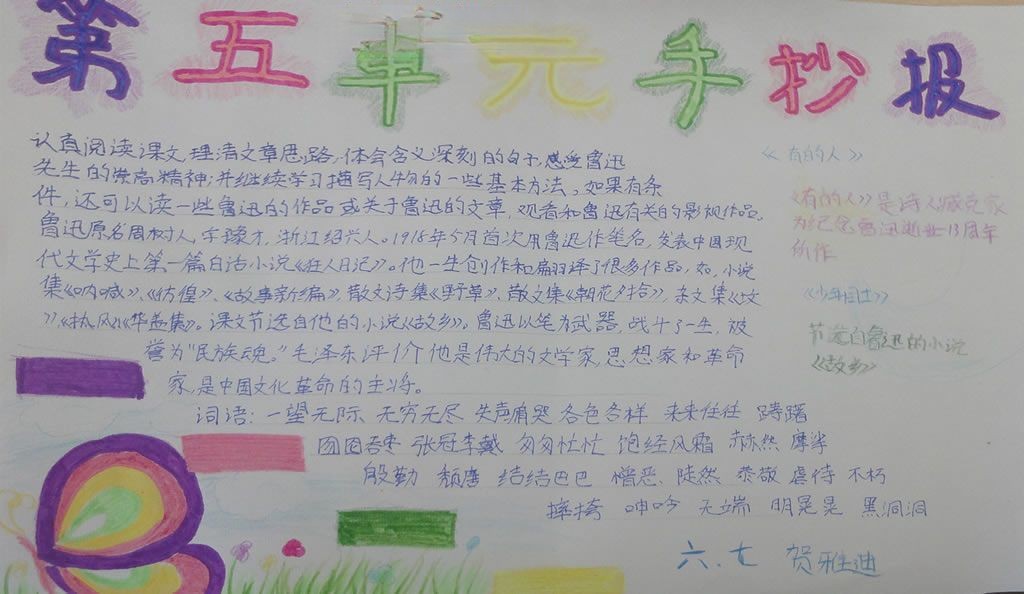 第五单元手抄报
认真阅读课文,理清文章思路,体会含义深刻的句子,感受鲁迅
先生的崇高精神;并继续学习描写人物的一些基本方法。如果有条
件,还可以读一些鲁迅的作品或关于鲁迅的文章,观看和鲁迅有关的影视作品。
鲁迅原名周树人,字豫才,浙江绍兴人。1918年5月首次用鲁迅作笔名,发表中国现
代文学史上第一篇白话小说《狂人日记》。他一生创作和翻译了很多作品,如,小说
集《呐喊》、《彷徨》、《故事新编》,散文诗集《野草》、散文集《朝花夕拾》,杂文集《坟
》,《热风》《华盖集》。课文节选自他的小说《故乡》。鲁迅以笔为武器,战斗了一生,被
誉为"民族魂。"毛泽东评价他是伟大的文学家,思想家和革命
家,是中国文化革命的主将。
词语:一望无际 无穷无尽 失声痛哭 各色各样 来来往往 踌躇
囫囵吞枣 张冠李戴 匆匆忙忙 饱经风霜 赫然 摩挲
殷勤 颓唐 结结巴巴 憎恶 陡然 恭敬 虐待 不朽
摔挎 呻吟 无端 明晃晃 黑洞洞
六.七 贺雅迪
《有的人》
《有的人》是诗人臧克家
为纪念鲁迅逝世13周年
所作
《少年闰土》
节选自鲁迅的小说
《故乡》